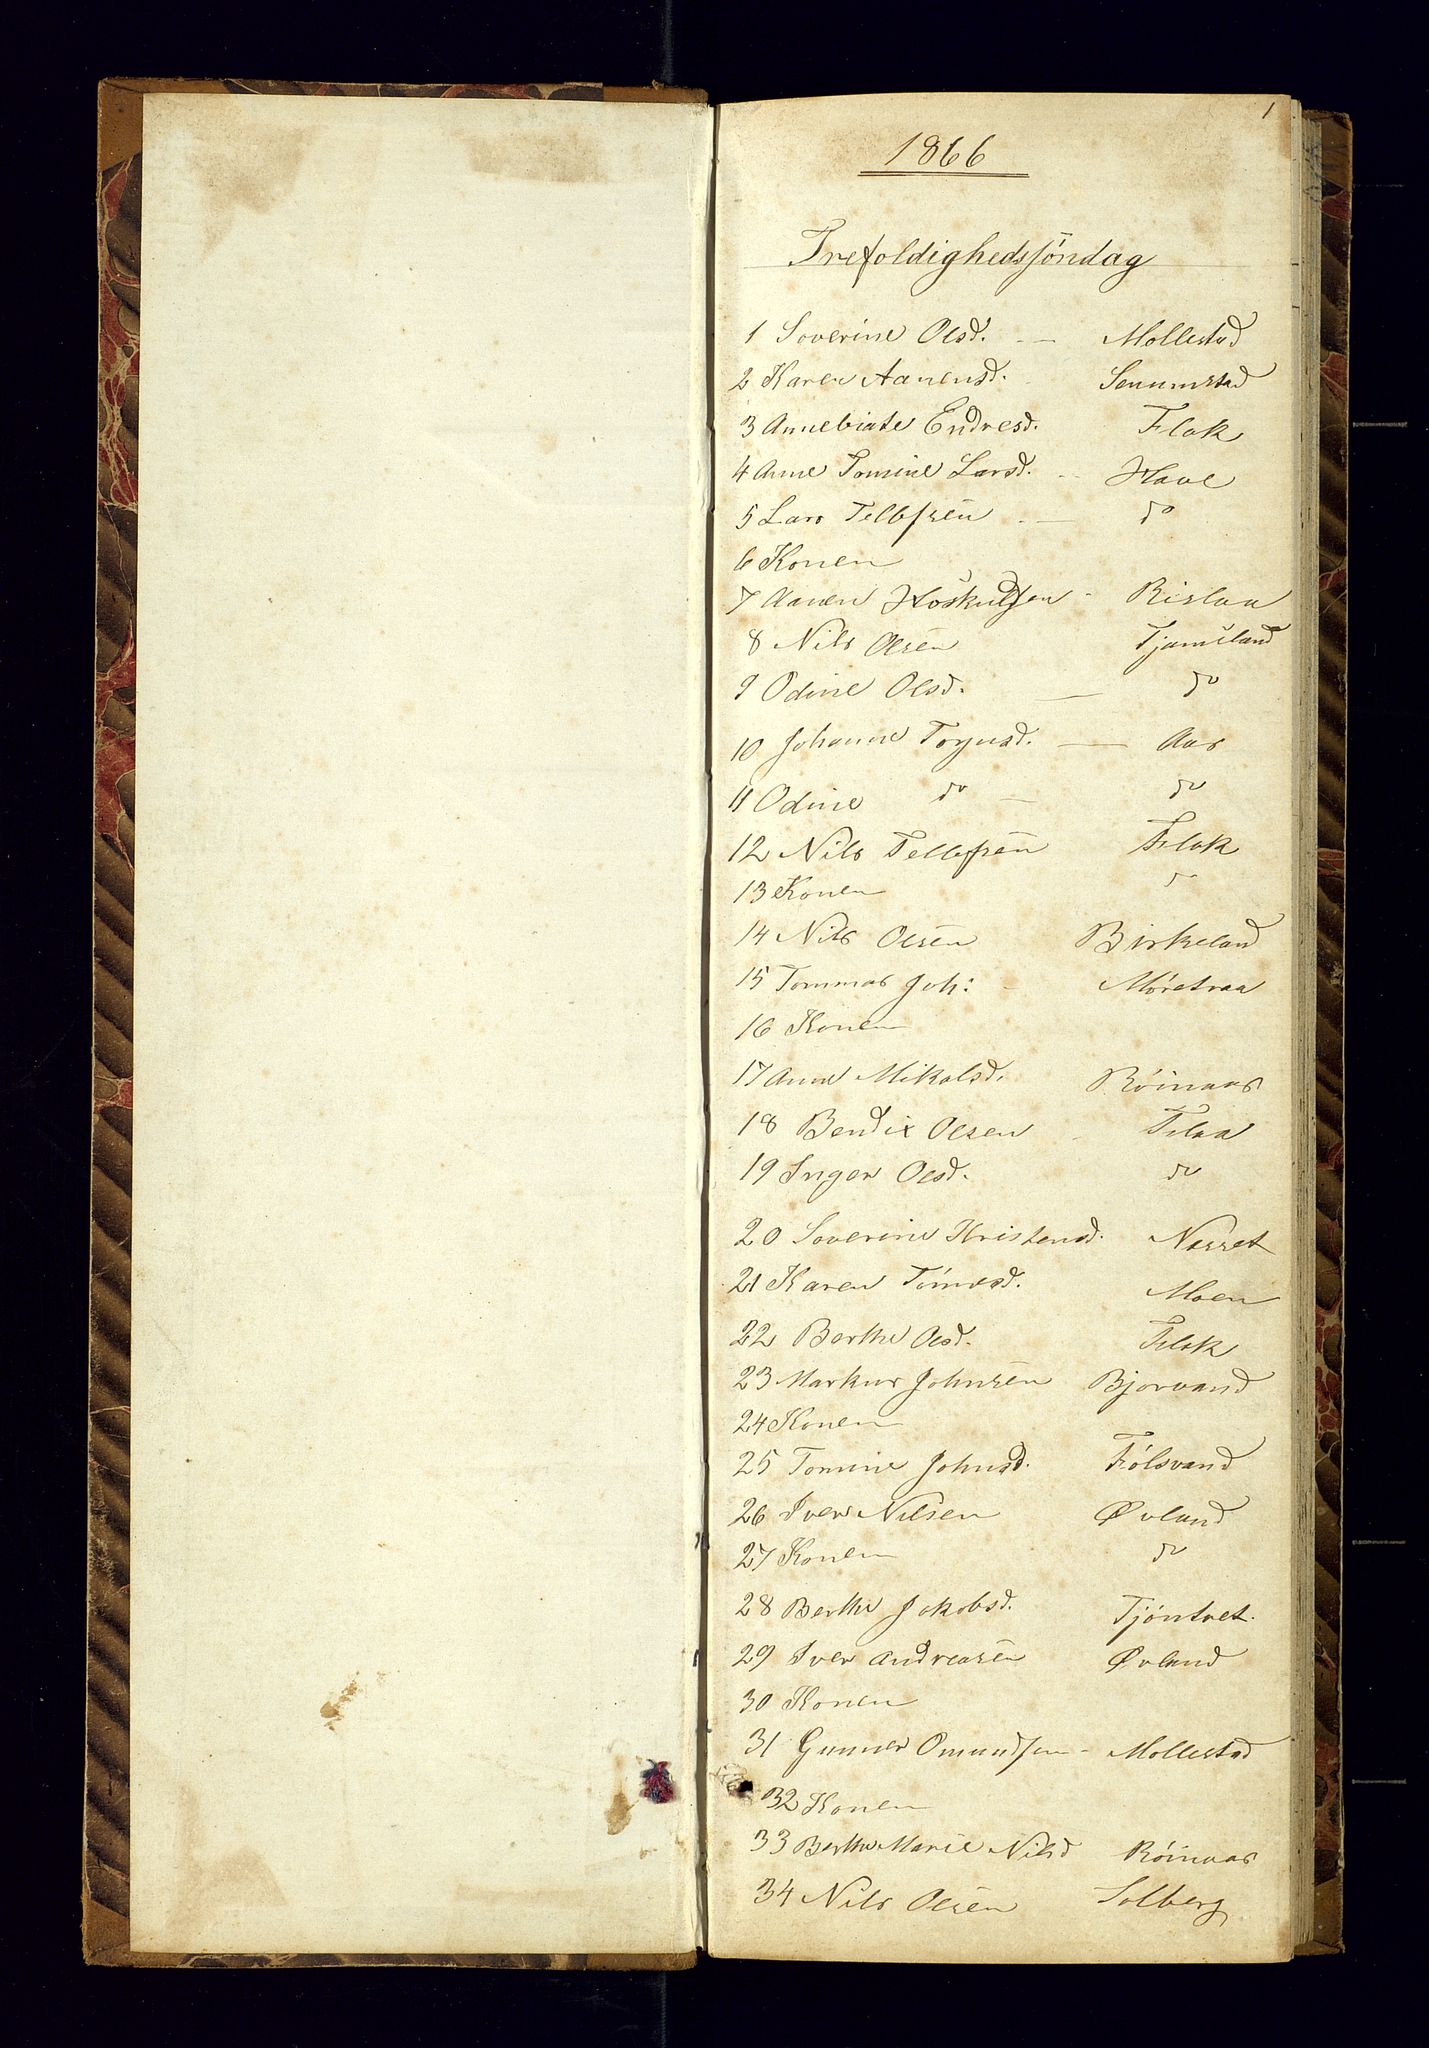 1
1866
Trefoldighedssöndag
1 Soverine Olsd. — Mollestad
2 Karen Aanensd. Senumstad
3 Annebiate Endresd. Flak
4 Anne Tomine Larsd. Have
5 Lars Tellefsen — do
6 Konen
7 Aanen Höskuldsen - Rislaa
8 Nils Olsen Tjamsland
9 Odine Olsd. — do
10 Johanne Torjusd. — Aas
11 Odine do — do
12 Nils Tellefsen Flak
13 Konen do
14 Nils Olsen Birkeland
15 Tommas Joh: - Møretraa
16 Konen
17 Anne Mikalsd. Röinaas
18 Bendix Olsen - Flaa
19 Inger Olsd. do
20 Soverine Kristensd. Nesset
21 Karen Tómesd. Moen
22 Berthe Olsd. Flak
23 Markus Johnsen Bjorvand
24 Konen
25 Tomine Johnsd. Fölsvand
26 Iver Nilsen Øvland
27 Konen do
28 Berthe Jakobsd. Tjöntvet.
29 Iver Andreasen Øvland
30 Konen
31 Gunner Omundsen - Mollestad
32 Konen
33 Berthe Marie Nilsd Röinaas
34 Nils Olsen Solberg